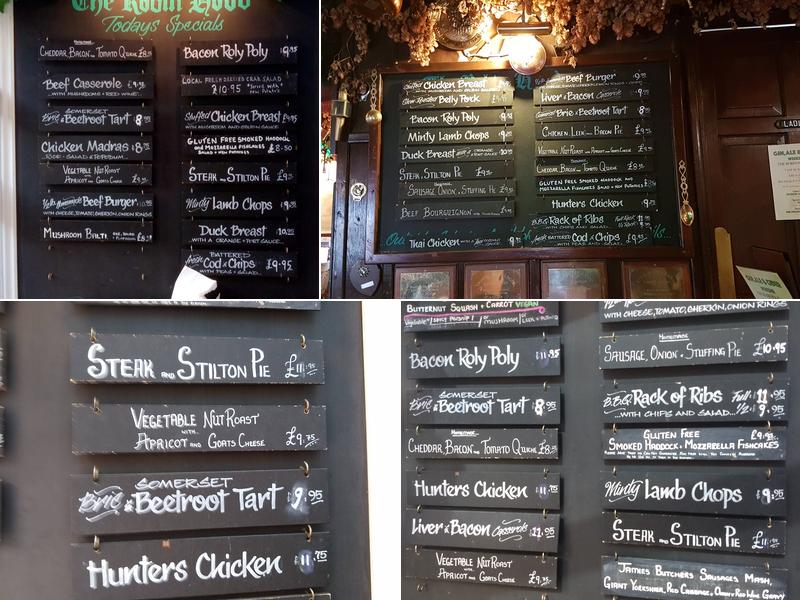 The Robin Hood
Todays Specials
HOMEMADE
CHEDDAR, BACON AND TOMATO QUICHE £8.
Beef Casserole £9.95
WITH MUSHROOMS & RED WINE
SOMERSET
Brie & Beetroot Tart 8.95
Chicken Madras £8.75
RICE, SALAD & POPPADUM
VEGETABLE NUT ROAST
WITH
APRICOT AND GOATS CHEESE £9.
Beef Burger
WITH CHEESE, TOMATO, GHERKIN, ONION RINGS
MUSHROOM BALTI
Bacon Roly Poly £9.95
LOCAL FRESH DRESSED CRAB SALAD
£10.95
Stuffed Chicken Breast £9.95
GLUTEN FREE SMOKED HADDOCK
AND MOZZARELLA FISHCAKES
SALAD & NEW POTATOES £8.50
STEAK AND STILTON PIE £9.95
Minty Lamb Chops £9.95
Duck Breast
WITH A ORANGE & PORT SAUCE
BATTERED
Fresh Cod & Chips £9.95
WITH PEAS AND SALAD
Stuffed Chicken Breast £9.95
Slow Roasted Belly Pork
Bacon Roly Poly
Minty Lamb Chops
Duck Breast
STEAK & STILTON PIE
SAUSAGE, ONION & STUFFING PIE
BEEF BOURGUIGNON
Thai Chicken
Beef Burger
Liver & Bacon Casserole
Brie & Beetroot Tart
CHICKEN, LEEK AND BACON PIE
VEGETABLE NUT ROAST
APRICOT AND GOATS CHEESE
CHEDDAR, BACON AND TOMATO QUICHE
GLUTEN FREE SMOKED HADDOCK AND
MOZZARELLA FISHCAKES SALAD & NEW POTATOES
Hunters Chicken
B.B.Q. Rack of Ribs
WITH CHIPS AND SALAD
Fresh BATTERED Cod & Chips
WITH PEAS AND SALAD
LADIES
GIN, ALE &
STEAK AND STILTON PIE £11.95
VEGETABLE NUT ROAST
WITH
APRICOT AND GOATS CHEESE £9.75
SOMERSET
Brie & Beetroot Tart £9.95
Hunters Chicken 11.75
BUTTERNUT SQUASH & CARROT VEGAN
Bacon Roly Poly £11.95
SOMERSET
Brie & Beetroot Tart 8.95
HOMEMADE
CHEDDAR, BACON AND TOMATO QUICHE £8.
Hunters Chicken 11.75
Liver & Bacon Casserole £11.95
VEGETABLE NUT ROAST
WITH
APRICOT AND GOATS CHEESE £9.75
WITH CHEESE, TOMATO, GHERKIN, ONION RINGS
HOMEMADE
SAUSAGE, ONION & STUFFING PIE £10.95
B.B.Q. Rack of Ribs Full 11.95
...WITH CHIPS AND SALAD... 1/2 9.95
GLUTEN FREE
SMOKED HADDOCK & MOZZARELLA FISHCAKES
Minty Lamb Chops £9.95
STEAK AND STILTON PIE £11.
JAMIES BUTCHERS SAUSAGES MASH,
GIANT YORKSHIRE, RED CABBAGE & ONION RED WINE GRAVY